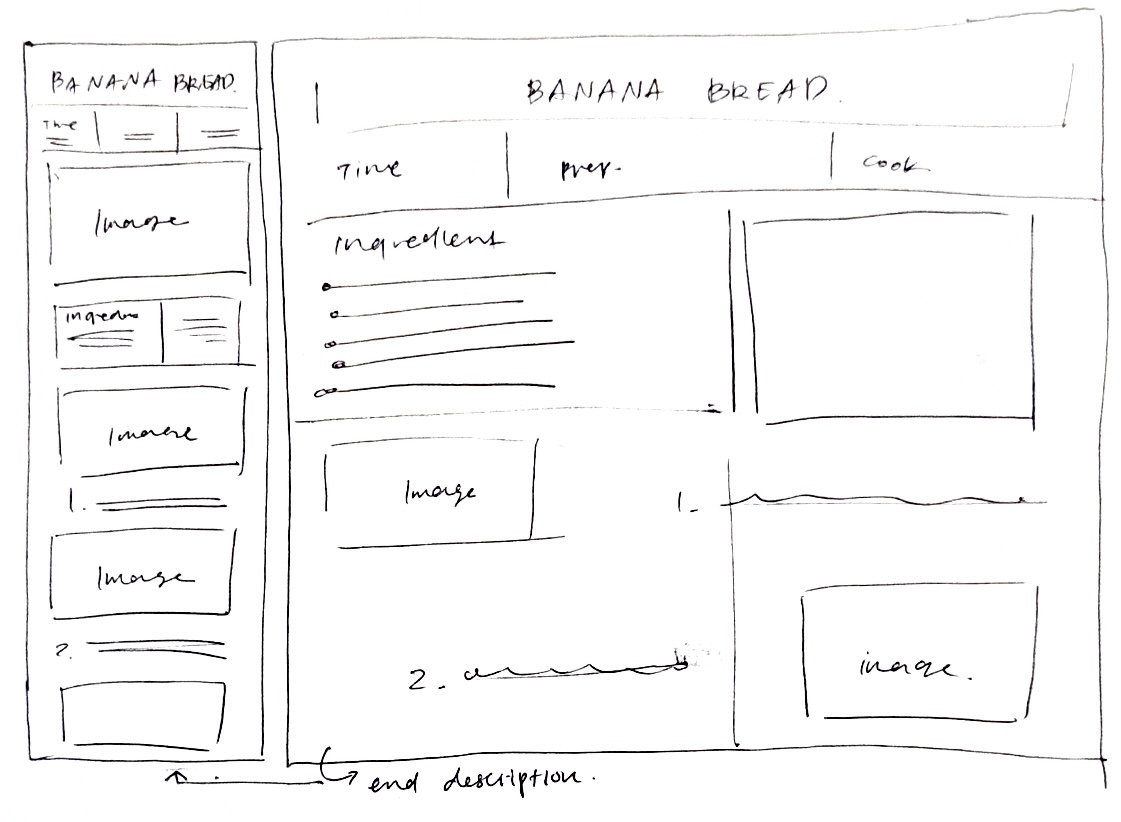 BANANA BREAD.
Time
Image
Ingredien
Image
1.
Image
2.
BANANA BREAD.
Time
Prep.
Cook
Ingredient
Image
1.
2.
image.
end description.